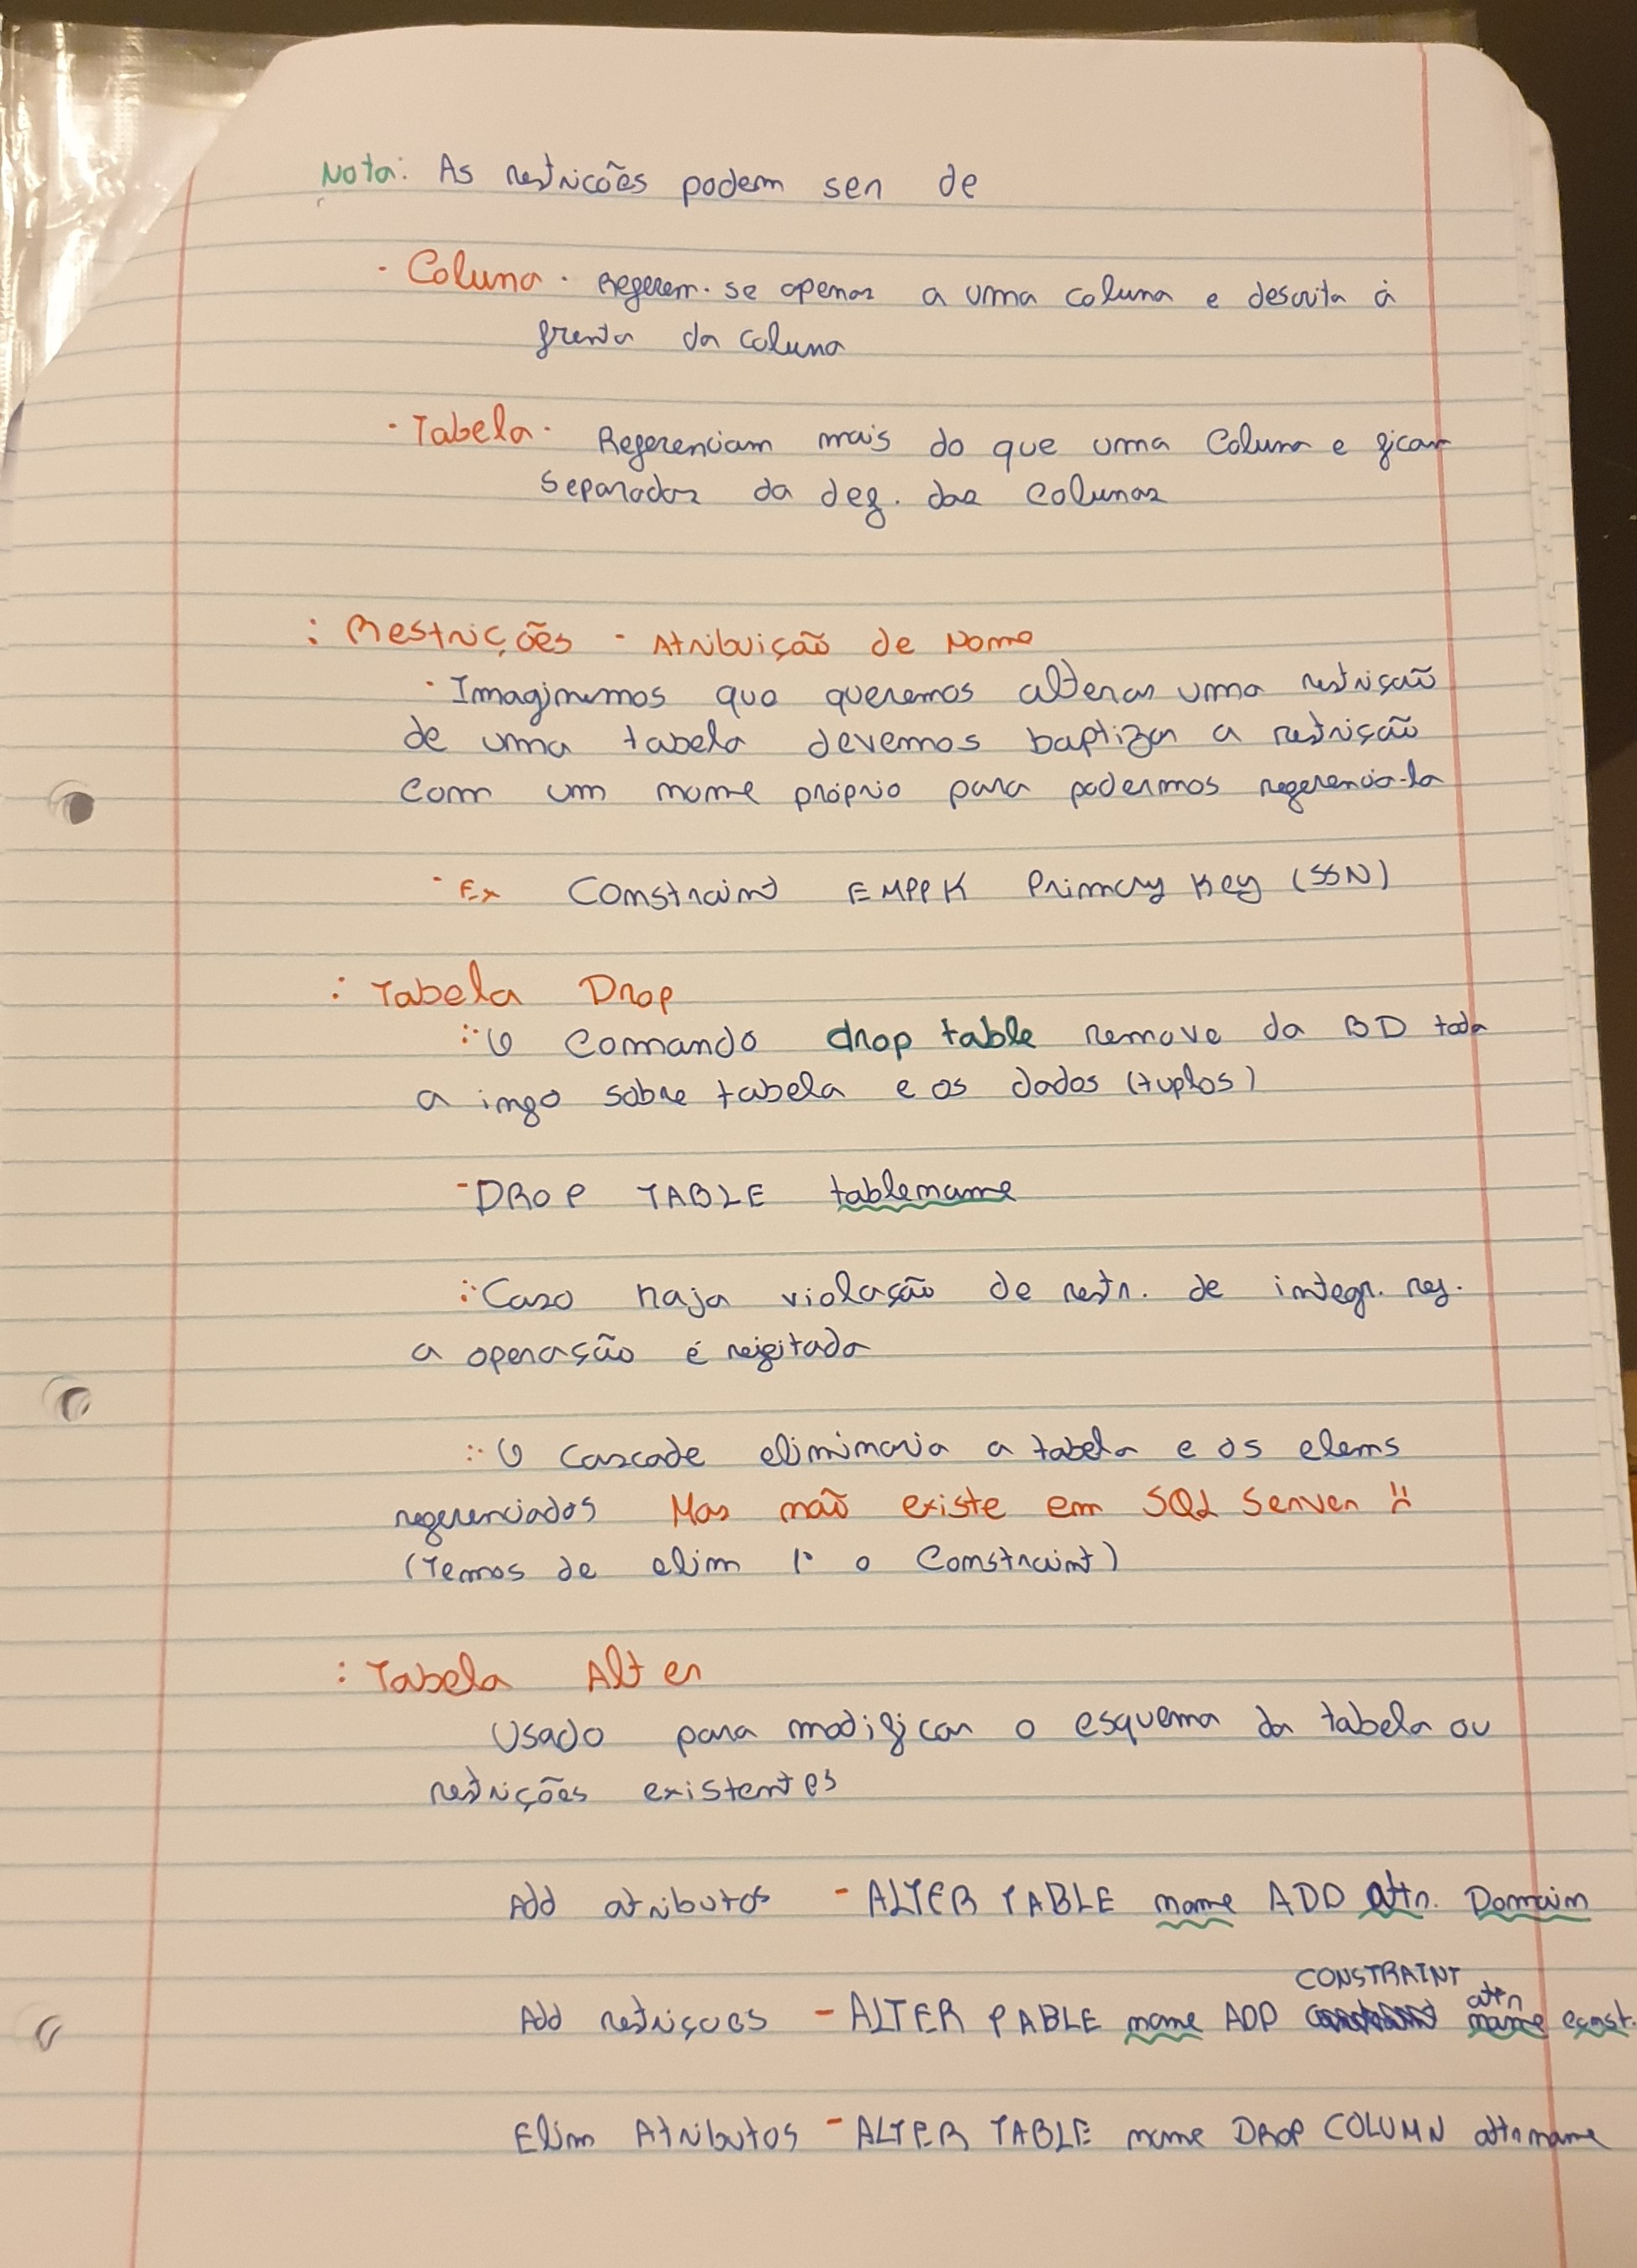 Nota: As restricões podem ser de
- Coluna - Referem-se apenas a uma coluna e descrita à
frente da coluna
- Tabela - Referenciam mais do que uma coluna e ficam
separadas da def. das colunas
: Restrições - Atribuição de Nome
- Imaginemos que queremos alterar uma restrição
de uma tabela devemos baptizar a restrição
com um nome próprio para podermos referencia-la
- Ex Constraint EMPPK Primary Key (SSN)
: Tabela Drop
:: O comando drop table remove da BD toda
a info sobre tabela e os dados (tuplos)
- DROP TABLE tablename
:: Caso haja violação de restr. de integr. ref.
a operação é rejeitada
:: O cascade eliminaria a tabela e os elems
referenciados Mas não existe em SQL Server !!
(Temos de elim 1º o Constraint)
: Tabela Alter
Usado para modificar o esquema da tabela ou
restrições existentes
Add atributos - ALTER TABLE name ADD attr. Domain
CONSTRAINT attr
Add restriçoes - ALTER PABLE name ADD name const.
Elim Atributos - ALTER TABLE name DROP COLUMN attrname